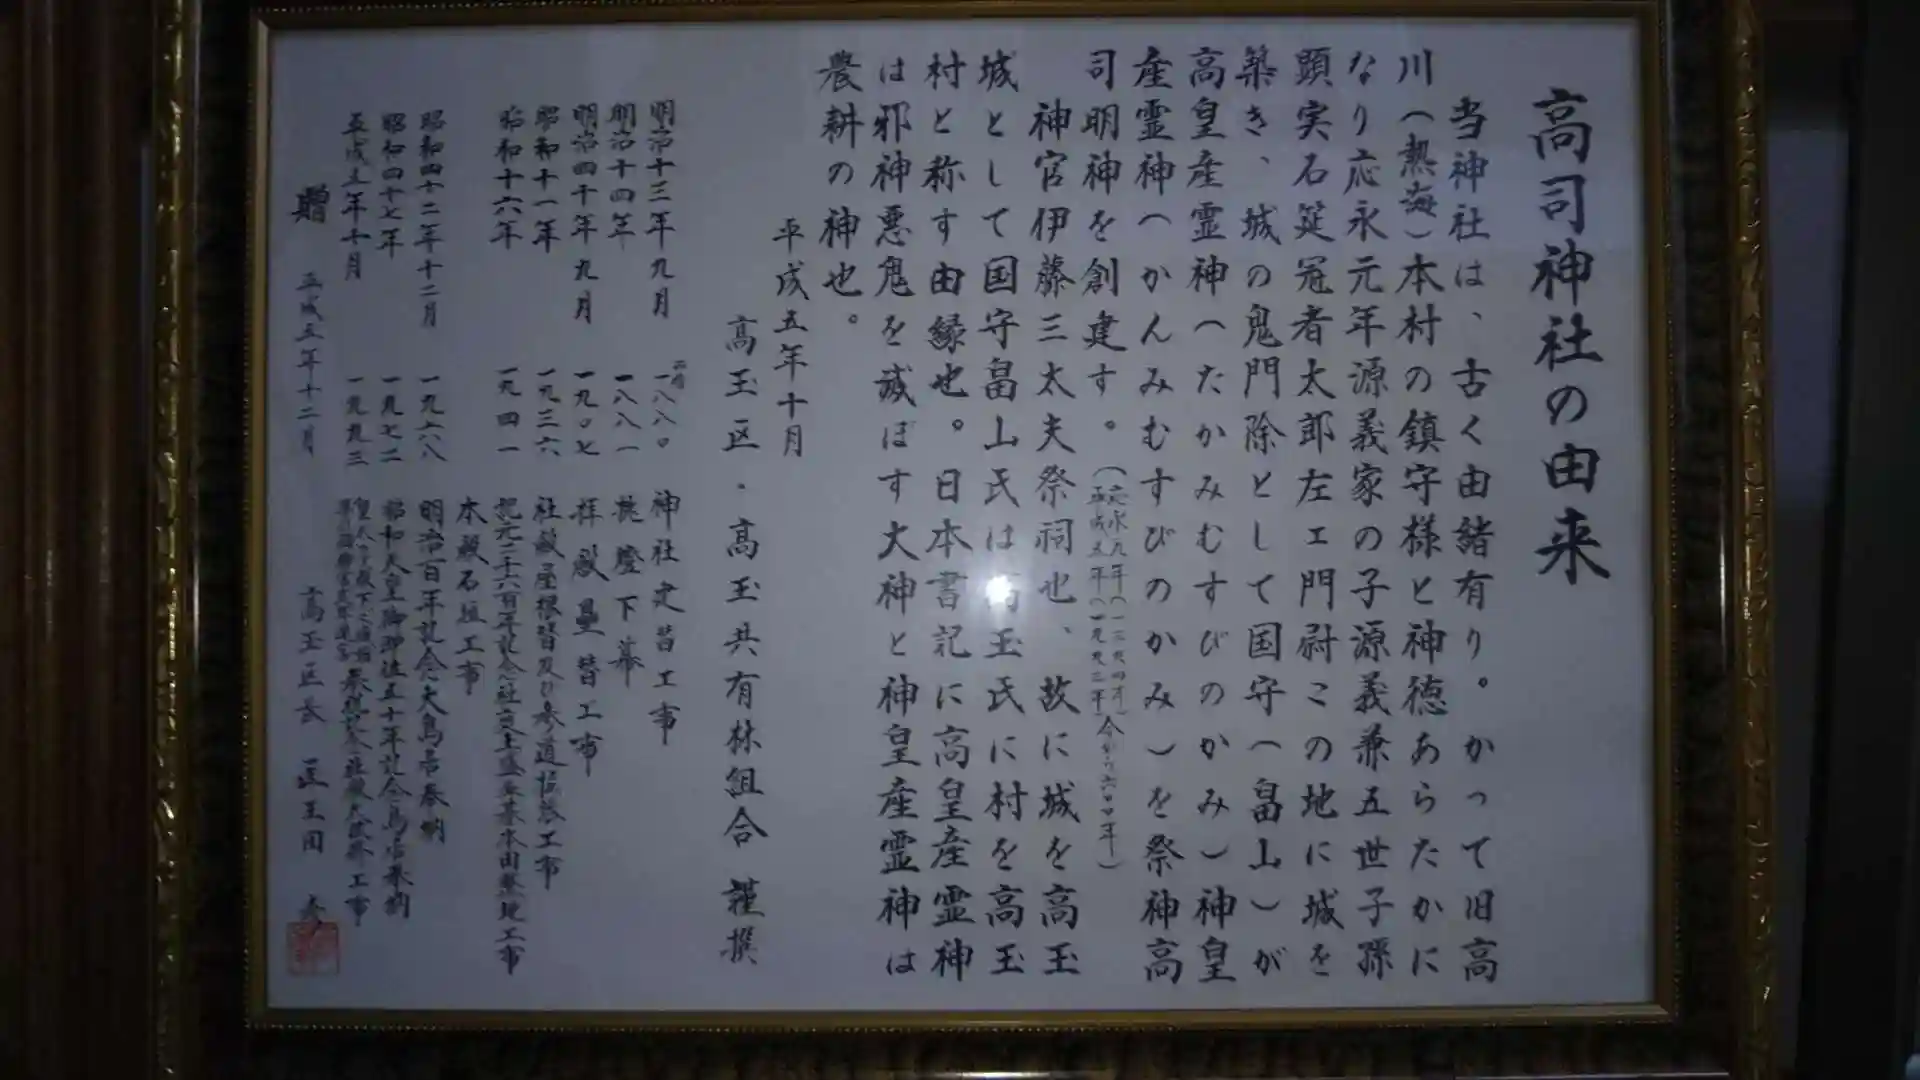 高司神社の由来
当神社は、古く由緒有り。かって旧高
川（熱海）本村の鎮守様と神徳あらたかに
なり応永元年源義家の子源義兼五世子孫
顕実石莚冠者太郎左エ門尉この地に城を
築き、城の鬼門除として国守（畠山）が
高皇産霊神（たかみむすびのかみ）神皇
産霊神（かんみむすびのかみ）を祭神高
司明神を創建す。（応永九年（ 平成五年（一九九三年）今から六〇〇年）
神官伊藤三太夫祭祠也、故に城を高玉
城として国守畠山氏は高玉氏に村を高玉
村と称す由縁也。日本書記に高皇産霊神
は邪神悪鬼を滅ぼす大神と神皇産霊神は
農耕の神也。
平成五年十月
高玉区・高玉共有林組合 謹撰
明治十三年九月 一八八〇 神社 工事
明治十四年 一八八一 下幕
明治四十年九月 一九〇七 拝殿 替工事
昭和十一年 一九三六 社殿屋根替及び参道 工事
昭和十六年 一九四一 紀元二千六百年記念社 地工事
本殿石垣工事
昭和四十二年十二月 一九六八 明治百年記念大鳥居奉納
昭和四十七年 一九七二 昭和天皇御即位五十年記念鳥居奉納
平成五年十月 一九九三 皇太子殿下 工事
贈 平成五年十二月 高玉区長